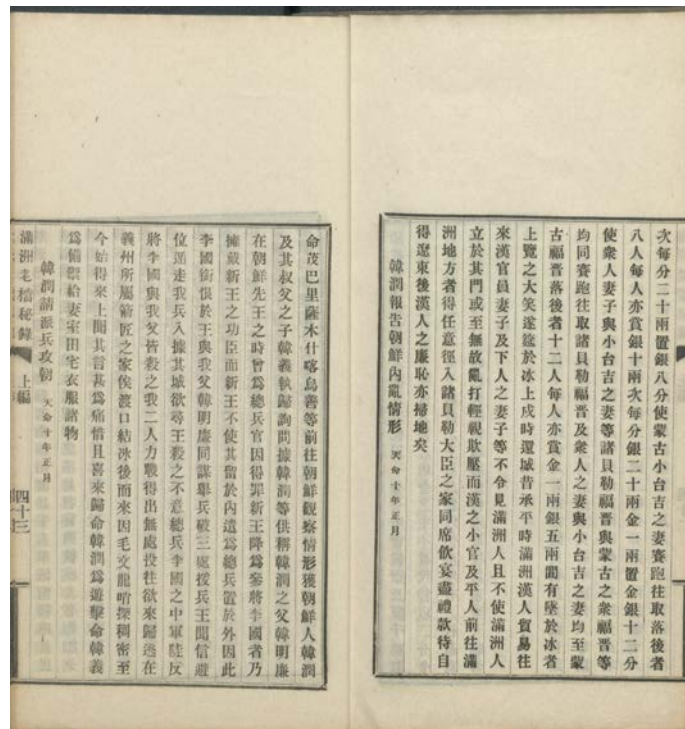 次每分二十兩置銀八分使蒙古小台吉之妻賽跑往取落後者
八人每人亦賞銀十兩次每分銀二十兩金一兩置金銀十二分
使衆人妻子與小台吉之妻等諸貝勒福晋與蒙古之衆福晋等
均同賽跑往取諸貝勒福晋及衆人之妻與小台吉之妻均至蒙
古福晋落後者十二人每人亦賞金一兩銀五兩間有墜於冰者
上覽之大笑遂筵於冰上戌時還城昔承平時滿洲漢人貿易往
來漢官員妻子及下人之妻子等不令見滿洲人且不使滿洲人
立於其門或至無故亂打輕視欺壓而漢之小官及平人前往滿
洲地方者得任意徑入諸貝勒大臣之家同席飲宴盡禮款待自
得遼東後漢人之廉恥亦掃地矣
韓潤報告朝鮮內亂情形 天命十年正月
命茂巴里薩木什喀烏善等前往朝鮮觀察情形獲朝鮮人韓潤
及其叔父之子韓義執歸詢問據韓潤等供稱韓潤之父韓明廉
在朝鮮先王之時曾爲總兵官因得罪新王降爲叅將李國者乃
擁戴新王之功臣而新王不使其留於內遣爲總兵置於外因此
李國銜恨於王與我父韓明廉同謀舉兵破三處援兵王聞信避
位逃走我兵入據其城欲尋王殺之不意總兵李國之中軍陡反
將李國與我父皆殺之我二人力戰得出無處投往欲來歸逃在
義州所屬箭匠之家俟渡口結冰後而來因毛文龍哨探稠密至
今始得來上聞其言甚爲痛惜且喜來歸命韓潤爲遊擊命韓義
爲備禦給妻室田宅衣服諸物
韓潤請派兵攻朝 天命十年正月
滿洲老檔秘錄 上編 四十三